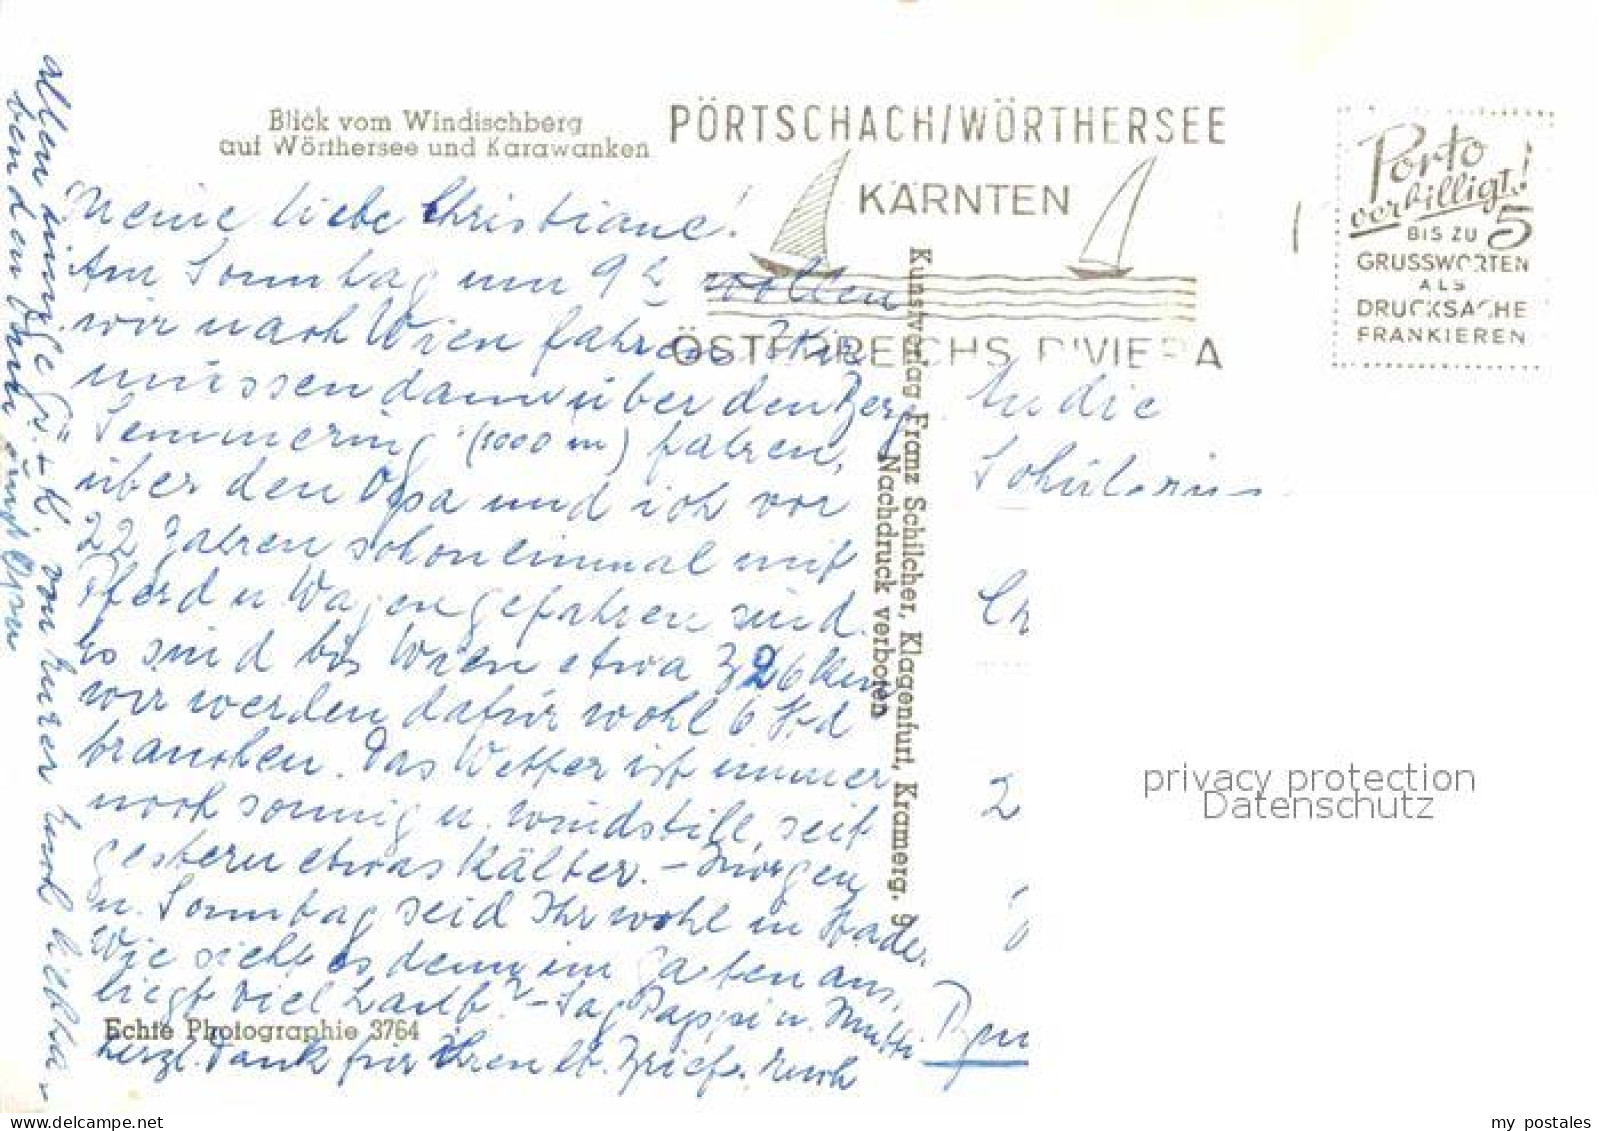 Blick vom Windischberg
auf Wörthersee und Karawanken
PÖRTSCHACH/WÖRTHERSEE
KÄRNTEN
ÖSTERREICHS RIVIERA
Porto
verbilligt!
BIS ZU 5
GRUSSWORTEN
ALS
DRUCKSACHE
FRANKIEREN
Meine liebe Christiane!
Am Sonntag um 9 h wollen
wir nach Wien fahren. Wir
müssen dann über den Berg
"Semmering" (1000 m) fahren,
über den Opa und ich vor
22 Jahren schon einmal mit
Pferd u Wagen gefahren sind.
Es sind bis Wien etwa 326 km
wir werden dafür wohl 6 Std
brauchen. Das Wetter ist immer
noch sonnig u. windstill, seit
gestern etwas kälter. – Morgen
u. Sonntag seid Ihr wohl in
Wie sieht es denn im Garten aus,
liegt viel Laub? – Sag Pappi u. Mutti
herzl. Dank für ihren lb. Brief. Euch
allen innige Gr. + K von Eurer Euch liebha-
benden Omi und Opa
Echte Photographie 3764
Kunstverlag Franz Schilcher, Klagenfurt, Kramerg. 9
Nachdruck verboten
An die
Schülerin
Ch
2
privacy protection
Datenschutz
my postales